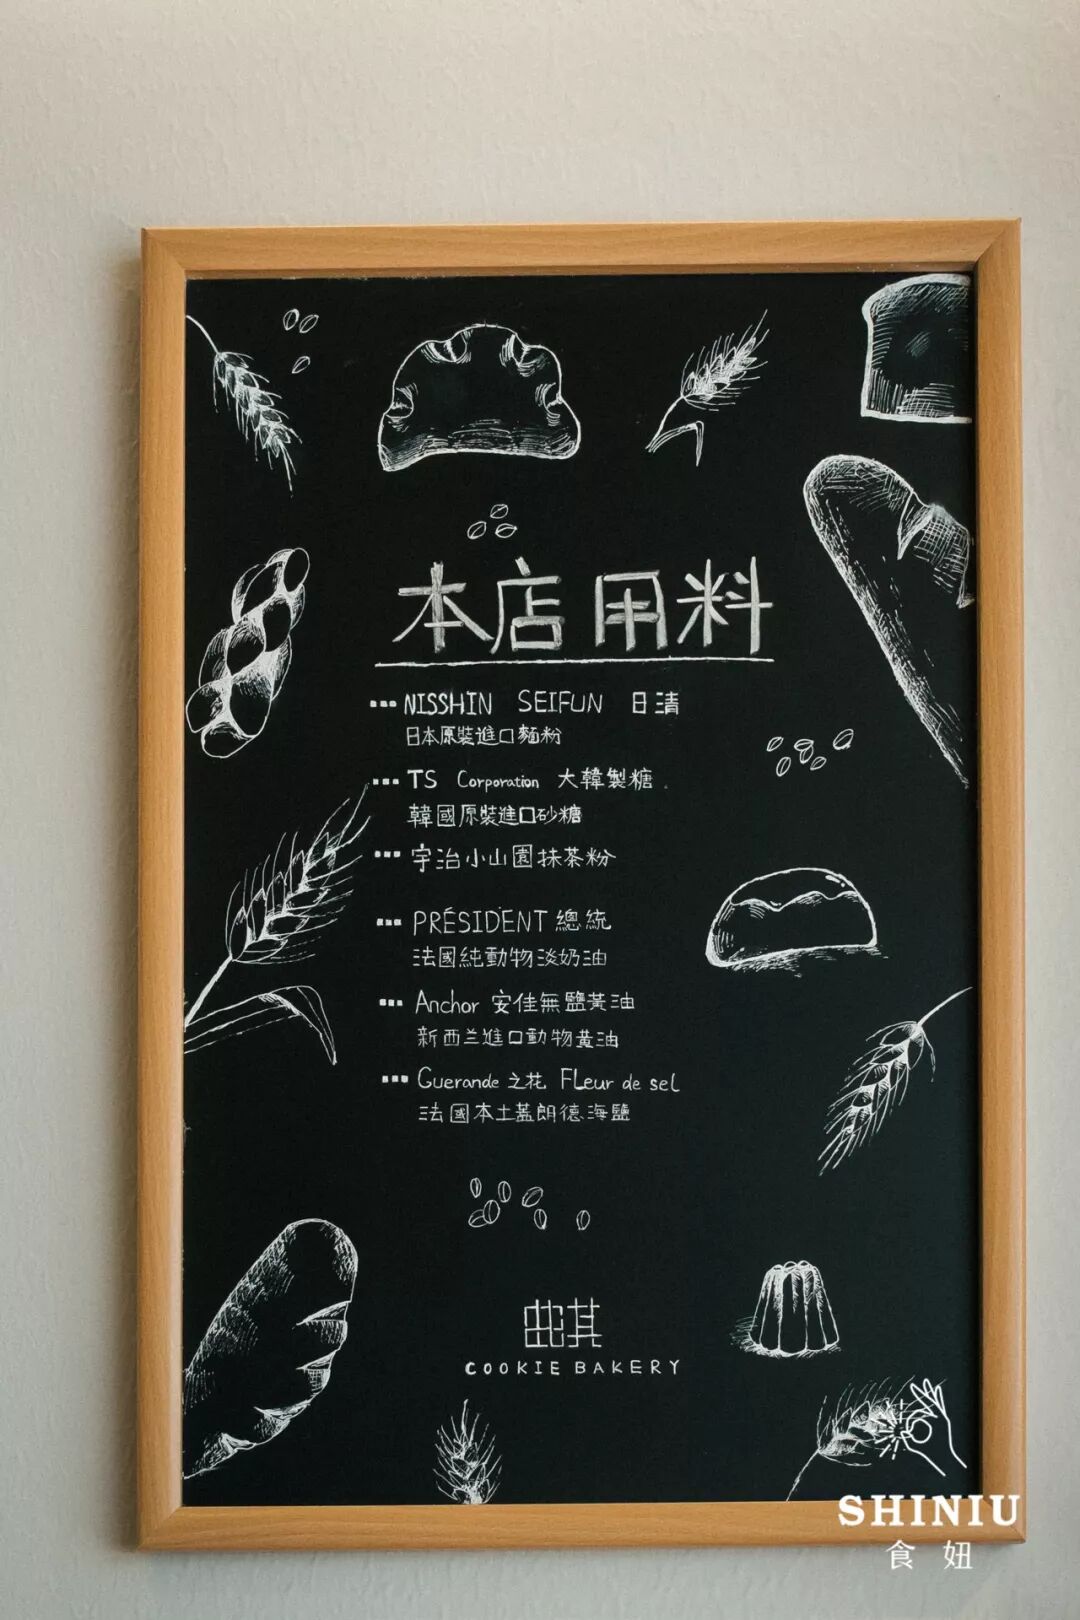 本店用料
NISSHIN SEIFUN 日清
日本原裝進口麵粉
TS Corporation 大韓製糖
韓國原裝進口砂糖
宇治小山園抹茶粉
PRÉSIDENT 總統
法國純動物淡奶油
Anchor 安佳無鹽黃油
新西兰進口動物黄油
Guerande 之花 FLeur de sel
法國本土蓋朗德海鹽
COOKIE BAKERY
SHINIU
食妞